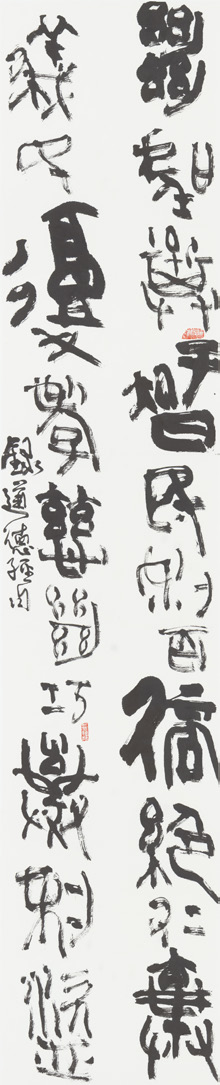 絕聖棄智民利百倍絕仁棄
義民復孝慈絕巧棄利盜
錄道德經句